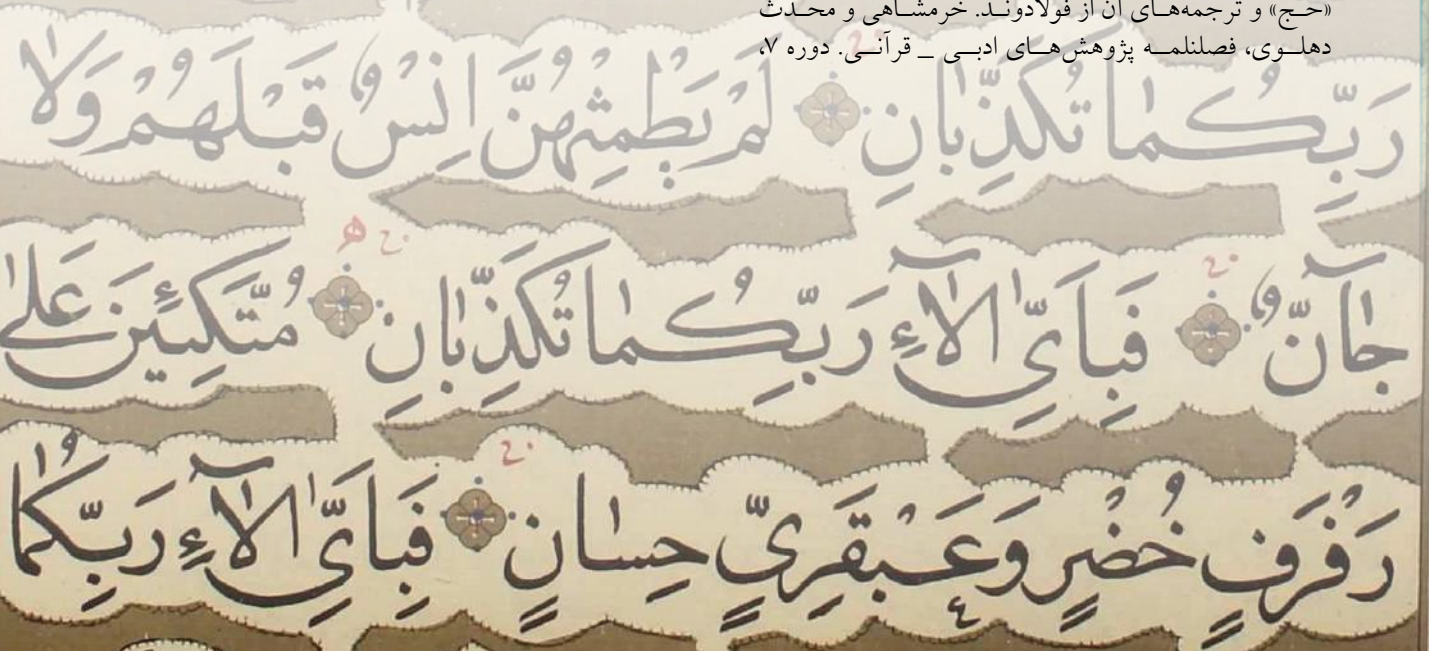 «حج» و ترجمه‌های آن از فولادوند. خرمشاهی و محدث
دهلوی، فصلنلمه پژوهش‌های ادبی _ قرآنی. دوره ۷،
رَبِّكُمَا تُكَذِّبَانِ لَمْ يَطْمِثْهُنَّ اِنْسٌ قَبْلَهُمْ وَلَا
جَٓانٌّ فَبِاَيِّ اٰلَٓاءِ رَبِّكُمَا تُكَذِّبَانِ مُتَّكِـِٔينَ عَلٰى
رَفْرَفٍ خُضْرٍ وَعَبْقَرِيٍّ حِسَانٍ فَبِاَيِّ اٰلَٓاءِ رَبِّكُمَا